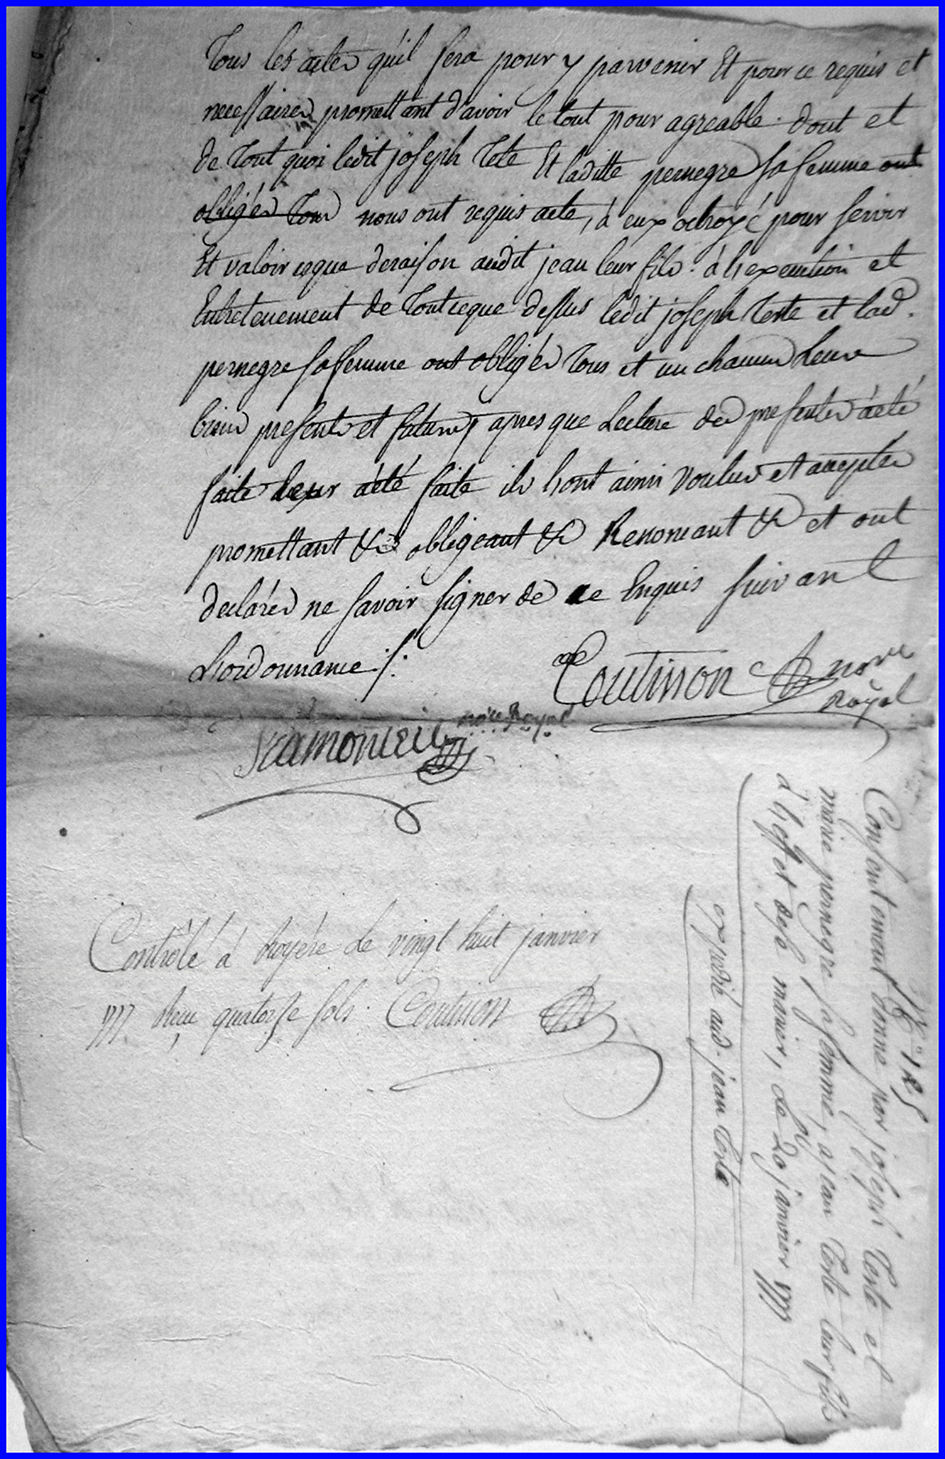 Tous les actes qu'il fera pour y parvenir Et pour ce requis et
necessaires promettant d'avoir le tout pour agreable. dont et
de tout quoi ledit joseph teste Et laditte pernegre sa femme ont
obligés Tous nous ont requis acte, à eux octroyé pour servir
Et valoir ceque deraison audit jean leur fils. à l'execution et
Entretenement de Tout ceque dessus ledit joseph teste et lad.
pernegre sa femme ont obligés tous et un chacun leurs
biens presents et futurs, apres que Lecture des presentes aété
faite leur aété faite ils lont ainsi voulus et acceptés
promettant &c obligeant &c Renoncant &c et ont
declarés ne savoir signer de ce Enquis suivant
L'ordonnance ./.
Coutisson nore
Royal
nore Royal
Contrôlé à Royére le vingt huit janvier
Reçu quatorse sols. Coutisson
No 125
Consentement donné par joseph teste et
marie pernegre sa femme, a jean teste leur fils
à l'effet dese marier, Le 20 janvier
expedié aud. jean teste